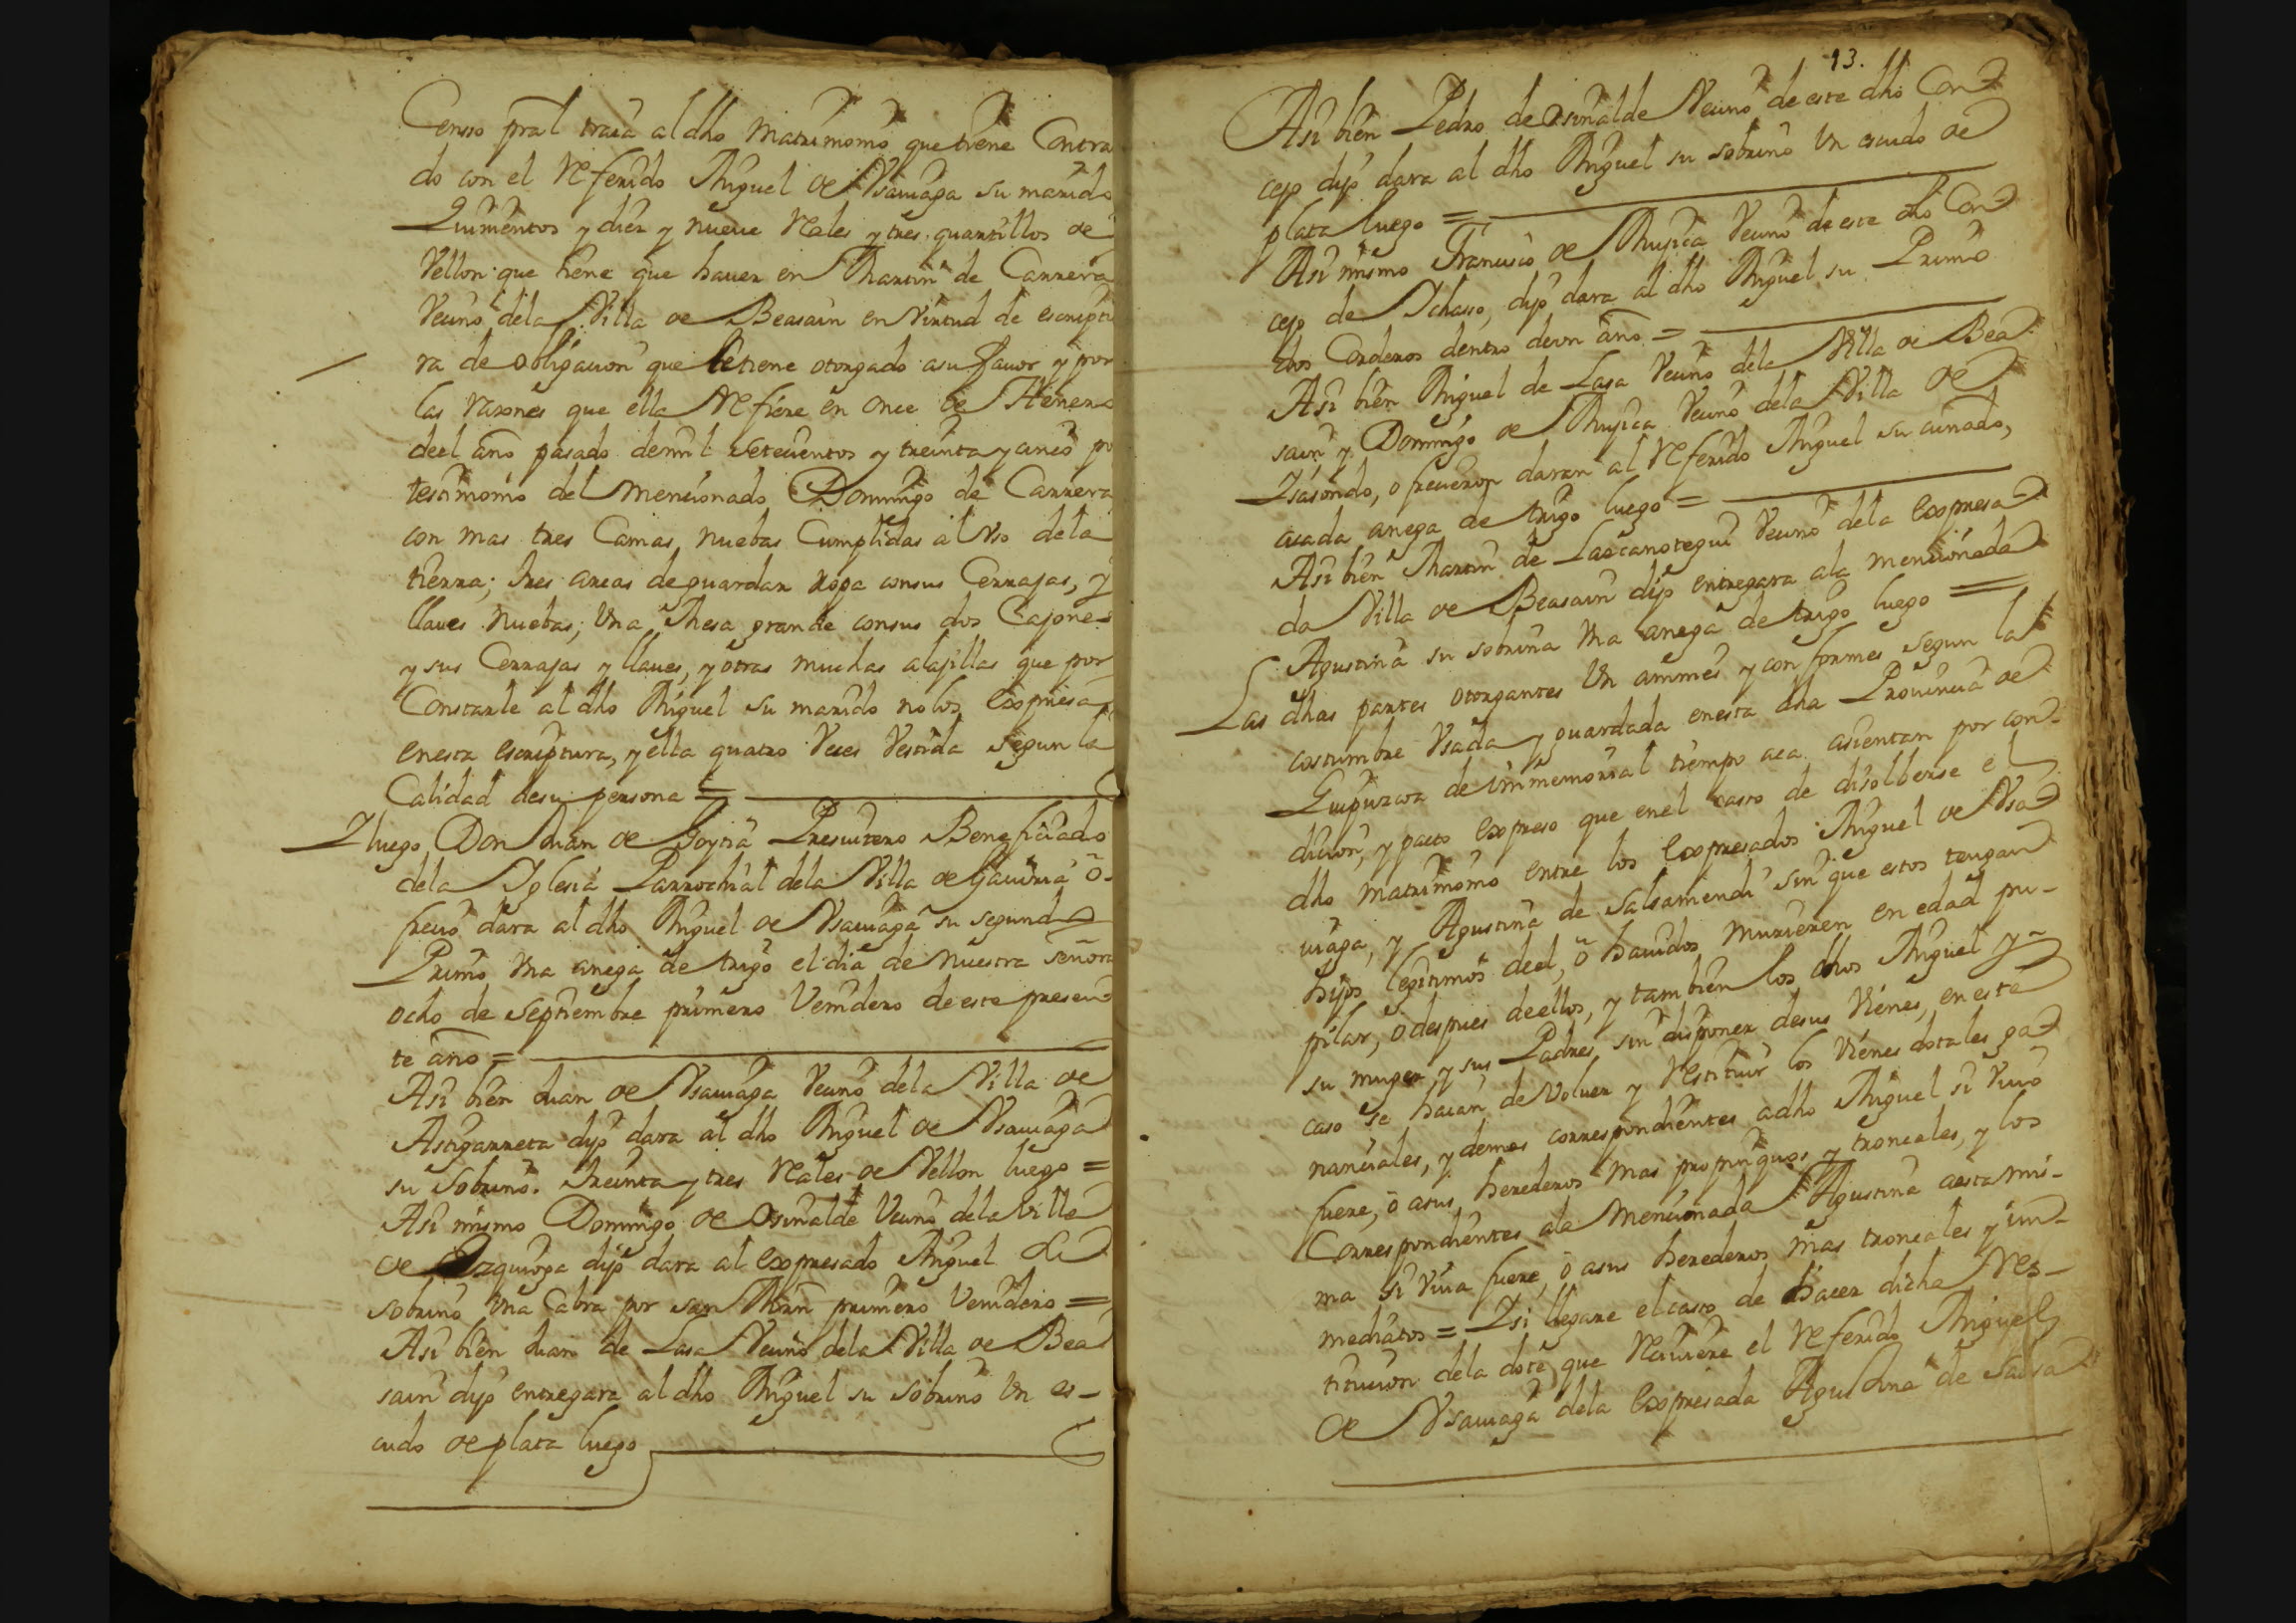 Censso pral traia al dho Matrimonio que tiene Contra
do con el Referido Miguel de Vsauiaga su marido
Quinientos y diez y nueue Reales y tres quartillos de
Vellon que tiene que hauer en Martin de Carrera
Vecino dela Villa de Beasain en Virtud de escriptu
ra de obligacion que le tiene otorgado asu fauor y por
las razones que ella Refiere en once de Henero
deel año pasado demil setecientos y treinta y cinco po
testimonio del mencionado Domingo de Carrera
con mas tres Camas nuebas Cumplidas al Vso dela
tierra; tres arcas de guardar ropa consus Cerrajas, y
llaues nuebas; Vna Mesa grande consus dos Cajones
y sus Cerrajas y llaues, y otras muchas alajillas que por
Constarle al dho Miguel su marido nolos Expresa
enesta escriptura, y ella quatro Veces Vestida segun la
Calidad desu persona =
Y luego Don Juan de Goytia Presuitero Beneficiado
dela Iglesia Parrochial dela Villa de Gauiria o-
frecio dara al dho Miguel de Vsauiaga su segundo
Primo Vna anega de trigo el dia de nuestra señora
ocho de septiembre primero Venidero de este presen
te año =
Asi bien Juan de Vsauiaga Vecino dela Villa de
Astigarreta dijo dara al dho Miguel de Vsauiaga
su sobrino treinta y tres Reales de Vellon luego =
Asi mismo Domingo de Osinalde Vecino dela Villa
de Ezquioga dijo dara al Expresado Miguel su
sobrino Vna Cabra por san Mrñ primero Venidero =
Asi bien Juan de Lasa Vecino dela Villa de Bea
sain dijo entregara al dho Miguel su sobrino Vn es-
cudo de plata luego
13.
Asi bien Pedro de Osinalde Vecino de este dho Con
cejo dijo dara al dho Miguel su sobrino Vn escudo de
plata luego =
Asi mismo Francisco de Mujica Vecino de este dho Con
cejo de Ichasso, dijo dara al dho Miguel su Primo
dos Corderos dentro deun año =
Asi bien Miguel de Lasa Vecino dela Villa de Bea
sain y Domingo de Mujica Vecino dela Villa de
Isasondo, ofrecieron daran al Referido Miguel su cuñado,
acada anega de trigo luego =
Asi bien Martin de Lascanotegui Vecino dela Expresa
da Villa de Beasain dijo entregara ala mencionada
Agustina su sobrina Vna anega de trigo luego =
Las dhas partes otorgantes Vn animes y con formes segun la
costumbre Vsada y guardada enesta dha Prouincia de
Guipuzcoa de immemorial tiempo aca asientan por con-
dicion, y pacto Expreso que enel casso de disolberse el
dho matrimonio entre los Expresados Miguel de Vsa
uiaga, y Agustina de Salsamendi sin que estos tengan
hijos legitimos deel, o hauidos murieren en edad pu-
pilar, o despues deellos, y tambien los dhos Miguel y
su muger y sus Padres, sin disponer desus Vienes, en este
caso se haian de Voluer y Restituir los Vienes dotales ga
nanciales, y demas correspondientes adho Miguel si Viuo
fuere, o asus herederos mas propinquos y troncales, y los
Correspondientes ala Mencionada Agustina aesta mis-
ma si Viua fuere, o asus herederos mas troncales y inn-
mediatos = Y si llegare el casso de hacer dicha Res-
titucion dela dote que Reciuiere el Referido Miguel
de Vsauiaga dela Expresada Agustina de Salsa